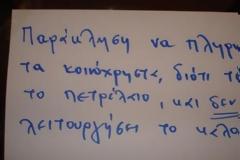 Παράκληση να πληρω
τα κοινόχρηστα, διότι τε
το πετρέλαιο, και δεν
λειτουργήσει το καλο